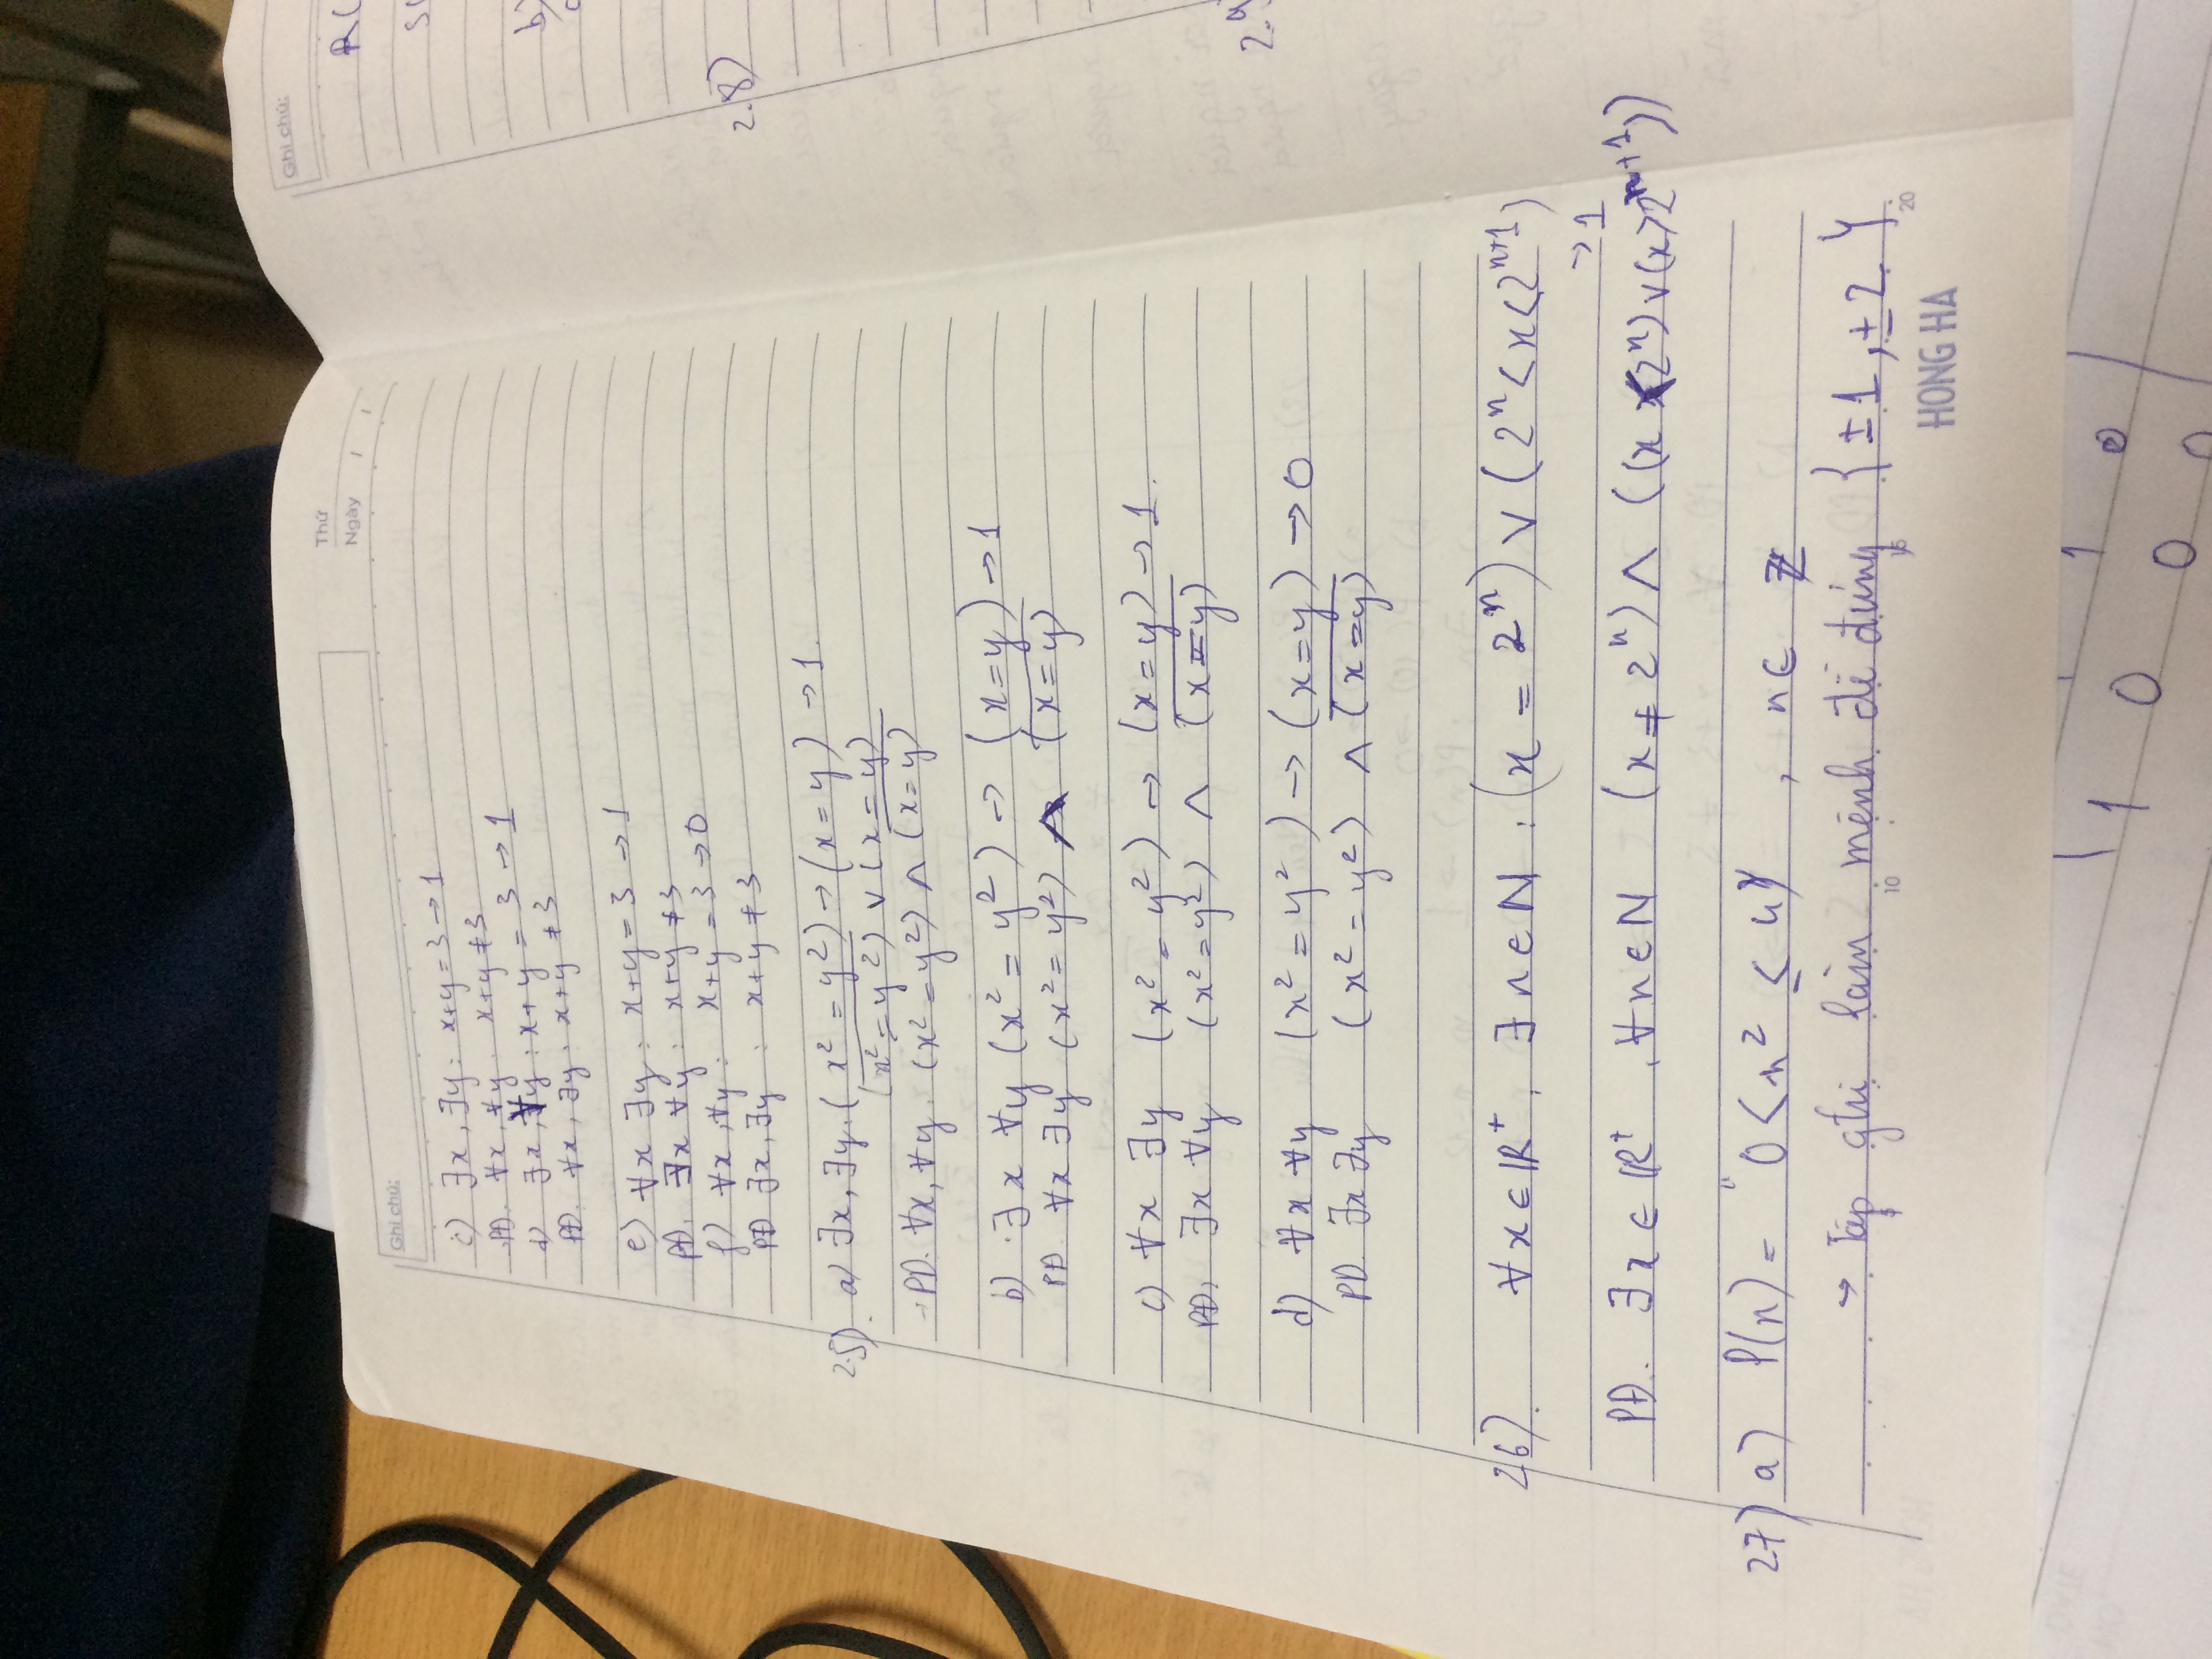 Ghi chú:
Thứ
Ngày / /
c) ∃x, ∃y: x+y=3 → 1
PĐ. ∀x, ∀y: x+y ≠ 3
d) ∃x, ∀y: x+y = 3 → 1
PĐ. ∀x, ∃y: x+y ≠ 3
e) ∀x ∃y: x+y=3 → 1
PĐ. ∃x ∀y: x+y ≠ 3
f) ∀x, ∀y: x+y = 3 → 0
PĐ ∃x, ∃y : x+y ≠ 3
2.5) a) ∃x, ∃y. (x² = y²) → (x = y) → 1.
\overline{(x² = y²)} ∨ (x = y)
PĐ. ∀x, ∀y. (x² = y²) ∧ \overline{(x=y)}
b) ∃x ∀y (x² = y²) → (x=y) → 1
PĐ. ∀x ∃y (x² = y²) ∧ \overline{(x=y)}
c) ∀x ∃y (x² = y²) → (x=y) → 1.
PĐ, ∃x ∀y (x² = y²) ∧ \overline{(x=y)}
d) ∀x ∀y (x² = y²) → (x=y) → 0
PĐ. ∃x ∃y (x² = y²) ∧ \overline{(x=y)}
26). ∀x ∈ R⁺, ∃n ∈ N : (x = 2ⁿ) ∨ (2ⁿ < x < 2ⁿ⁺¹)
→ 1
PĐ. ∃x ∈ R⁺, ∀n ∈ N (x ≠ 2ⁿ) ∧ ((x < 2ⁿ) ∨ (x > 2ⁿ⁺¹))
27) a) P(n) = "0 < n² ≤ 4", n ∈ Z
→ Tập ghi làm mệnh đề đúng {±1, ±2}
5 10 15 20
HONG HA
Ghi chú:
R(
S(
b)
2.8)
2.9
1
1 0 0
0 0